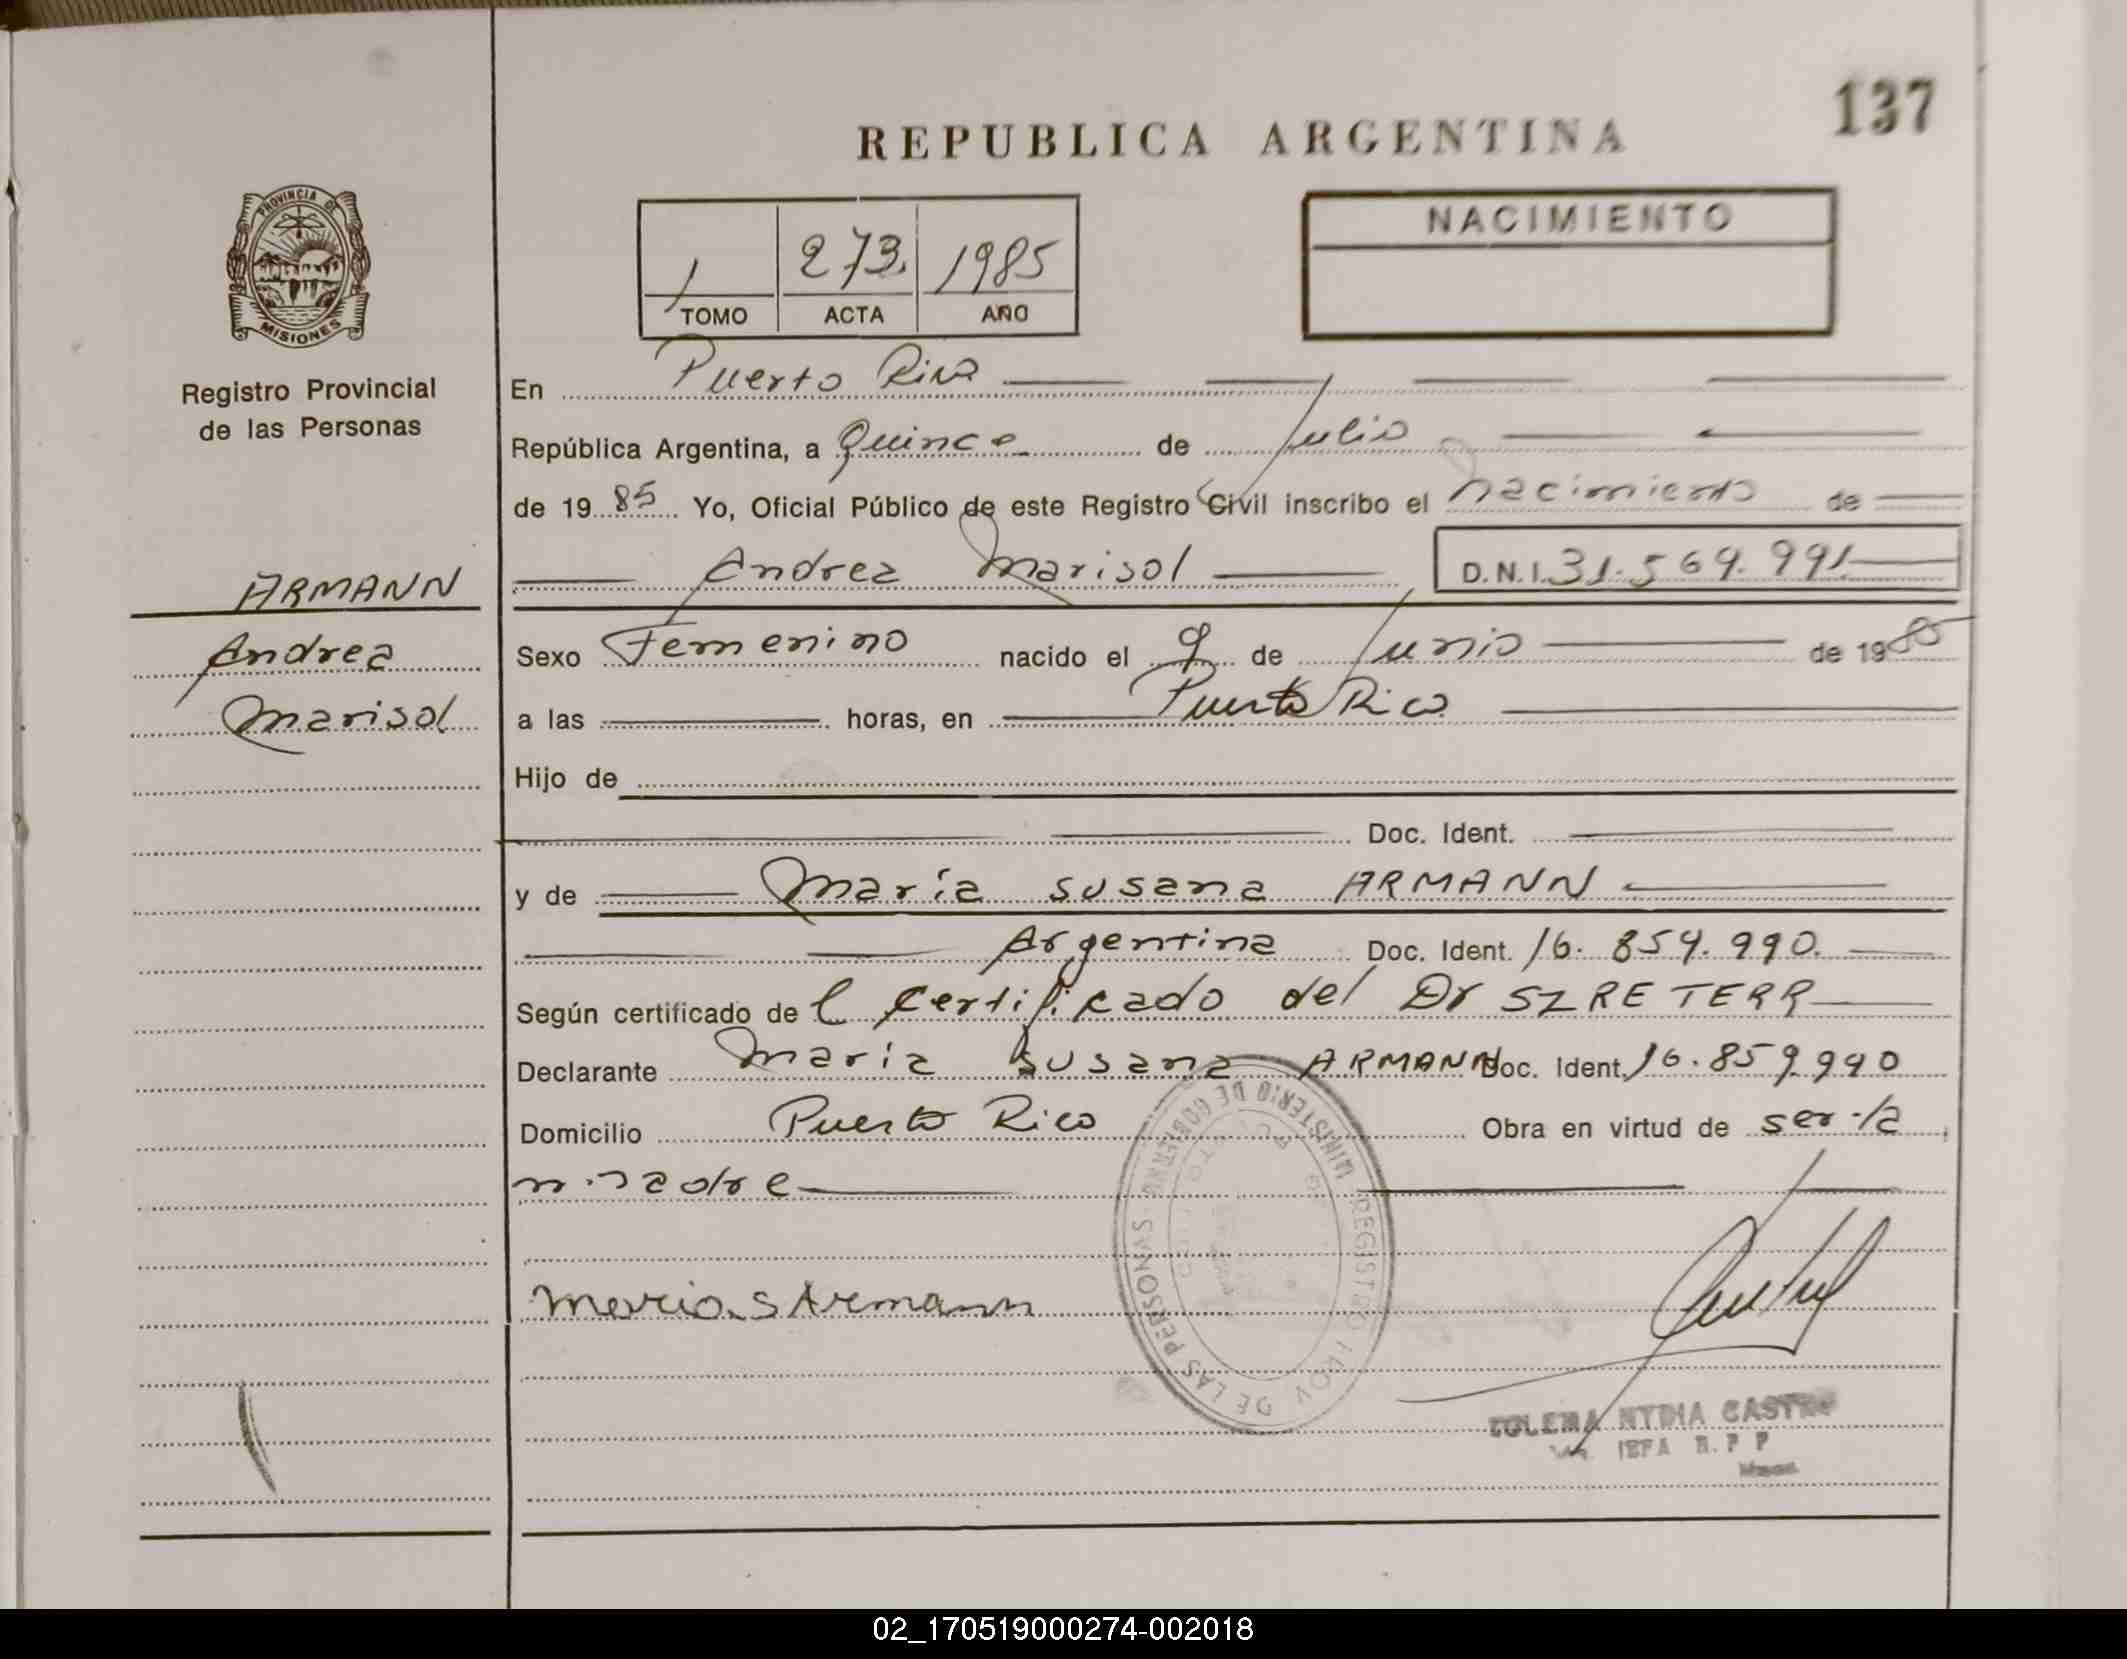 137
REPUBLICA ARGENTINA
PROVINCIA DE
MISIONES
Registro Provincial
de las Personas
1 273 1985
TOMO ACTA AÑO
NACIMIENTO
En Puerto Rico
República Argentina, a Quince de Julio
de 1985 Yo, Oficial Público de este Registro Civil inscribo el nacimiento de
Andrea Marisol D.N.I. 31.569.991
ARMANN
Andrea
Marisol
Sexo Femenino nacido el 9 de Junio de 1985
a las horas, en Puerto Rico
Hijo de
Doc. Ident.
y de María Susana ARMANN
Argentina Doc. Ident. 16.859.990.
Según certificado de l Certificado del Dr SZRETERR
Declarante María Susana ARMANN Doc. Ident. 16.859.990
Domicilio Puerto Rico Obra en virtud de ser la
madre
MINISTERIO DE GOBIERNO
REGISTRO PROV DE LAS PERSONAS
Maria S Armann
NYDIA CASTRO
JEFA R.P.P
02_170519000274-002018